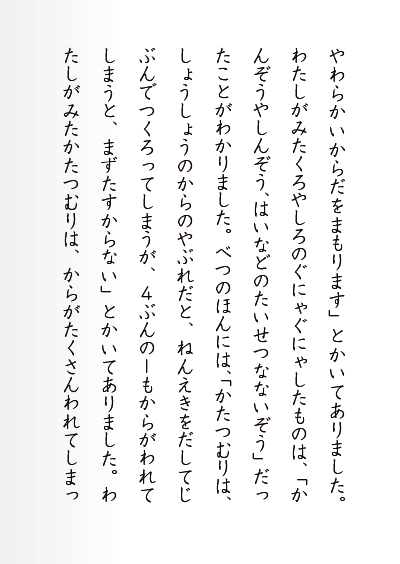 やわらかいからだをまもります」とかいてありました。
わたしがみたくろやしろのぐにゃぐにゃしたものは、「か
んぞうやしんぞう、はいなどのたいせつなないぞう」だっ
たことがわかりました。べつのほんには、「かたつむりは、
しょうしょうのからのやぶれだと、ねんえきをだしてじ
ぶんでつくろってしまうが、４ぶんの１もからがわれて
しまうと、まずたすからない」とかいてありました。わ
たしがみたかたつむりは、からがたくさんわれてしまっ